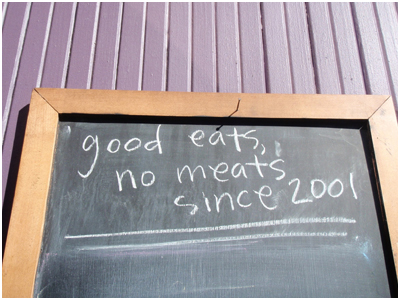 good eats,
no meats
since 2001